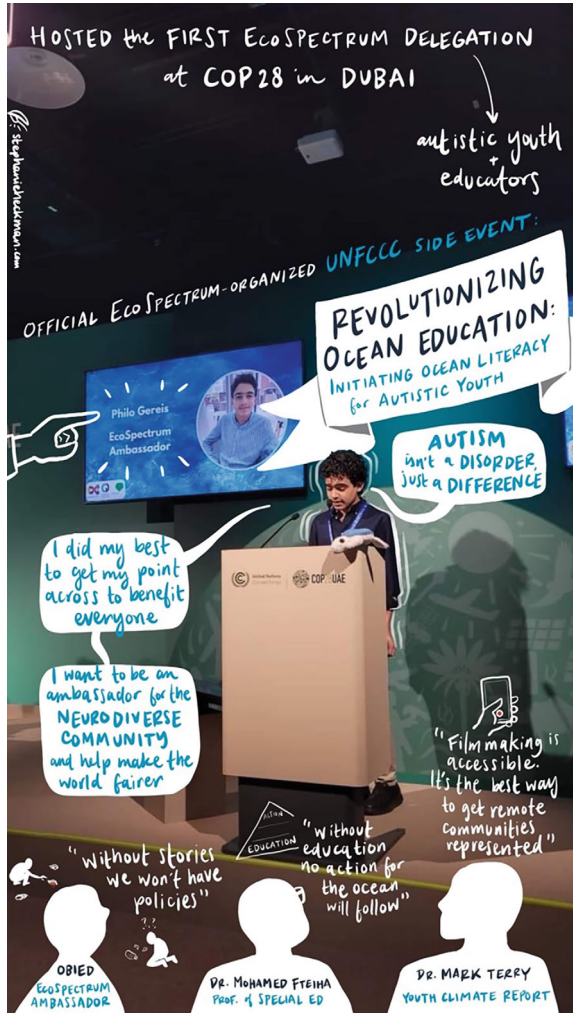 HOSTED the FIRST ECOSPECTRUM DELEGATION
at COP28 in DUBAI
autistic youth
+
educators
stephanieheckman.com
OFFICIAL ECOSPECTRUM-ORGANIZED UNFCCC SIDE EVENT:
REVOLUTIONIZING
OCEAN EDUCATION:
INITIATING OCEAN LITERACY
for AUTISTIC YOUTH
Philo Gereis
EcoSpectrum
Ambassador
AUTISM
isn't a DISORDER,
just a DIFFERENCE
I did my best
to get my point
across to benefit
everyone
United Nations
Climate Change
COP28UAE
I want to be an
ambassador for the
NEURODIVERSE
COMMUNITY
and help make the
world fairer
"Filmmaking is
accessible.
It's the best way
to get remote
communities
represented"
ACTION
EDUCATION
"without
education
no action for
the ocean
will follow"
"Without stories
we won't have
policies"
???
OBIED
ECOSPECTRUM
AMBASSADOR
DR. MOHAMED FTEIHA
PROF. of SPECIAL ED
DR. MARK TERRY
YOUTH CLIMATE REPORT